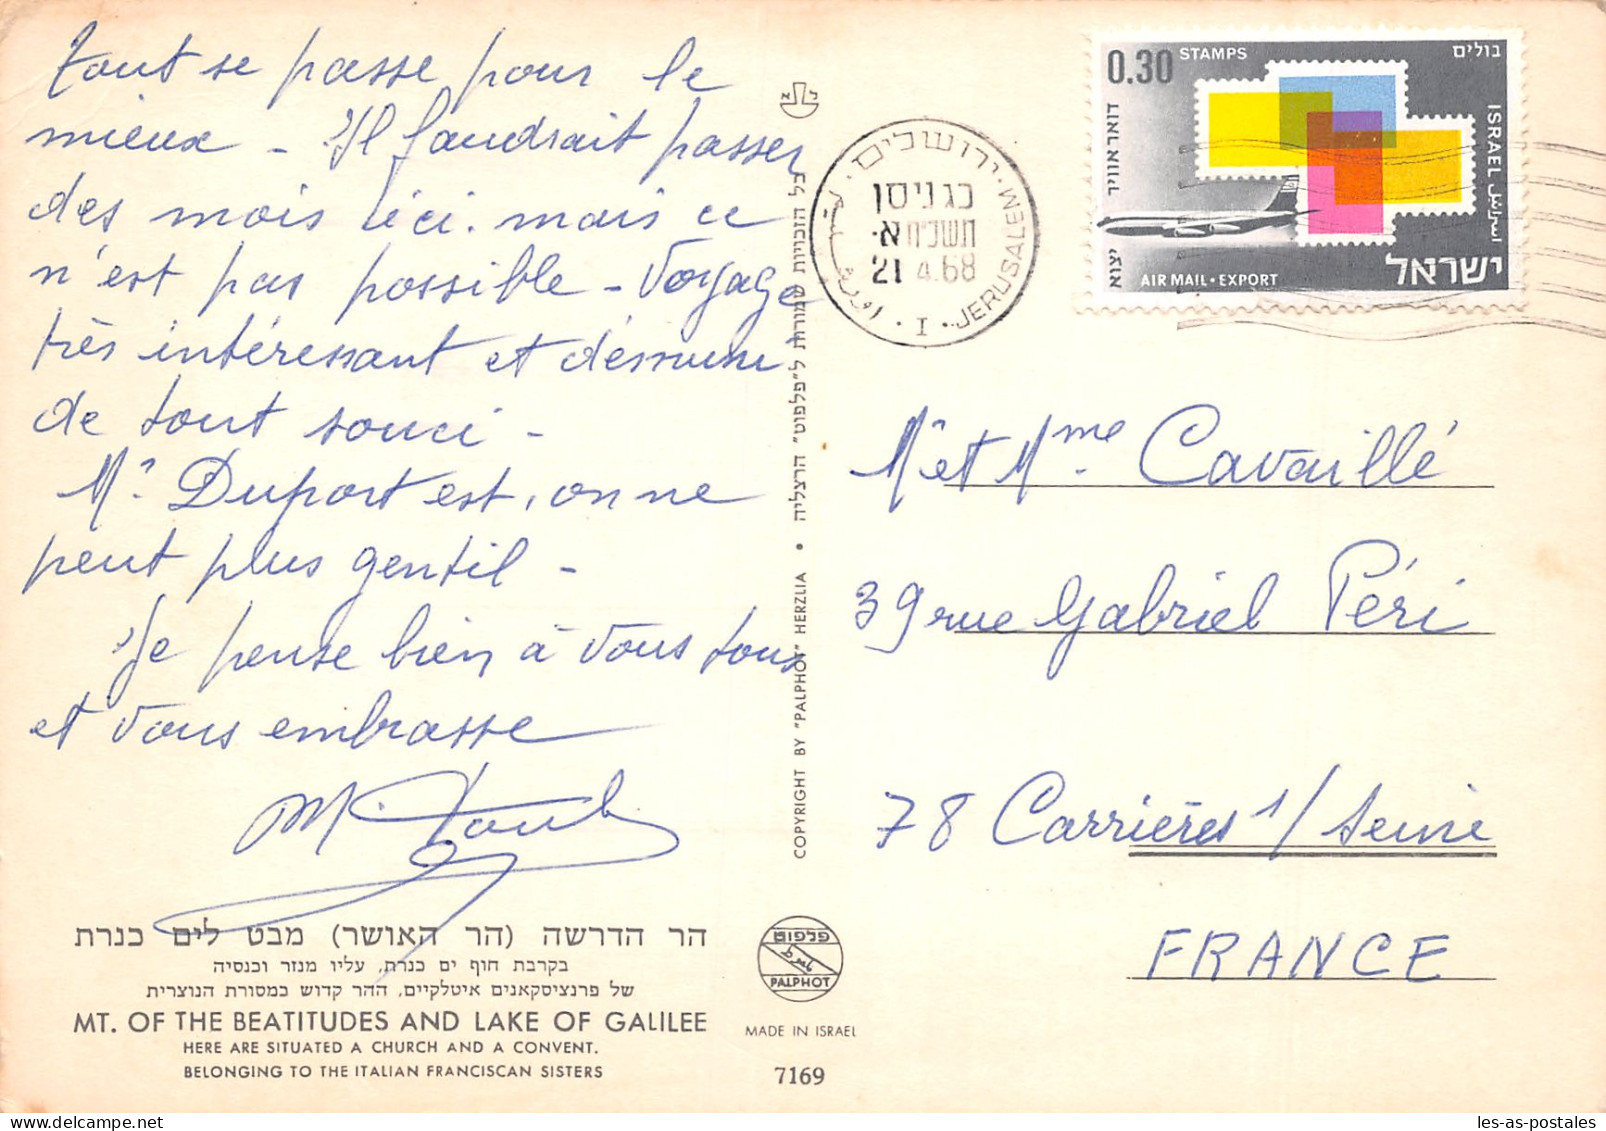 tout se passe pour le
mieux - Il faudrait passer
des mois ici. mais ce
n'est pas possible - Voyage
très intéressant et dénué
de tout souci -
Mr. Duport est, on ne
peut plus gentil -
Je pense bien à vous tous
et vous embrasse
הר הדרשה (הר האושר) מבט לים כנרת
בקרבת חוף ים כנרת, עליו מנזר וכנסיה
של פרנציסקאנים איטלקיים, ההר קדוש במסורת הנוצרית
MT. OF THE BEATITUDES AND LAKE OF GALILEE
HERE ARE SITUATED A CHURCH AND A CONVENT.
BELONGING TO THE ITALIAN FRANCISCAN SISTERS
COPYRIGHT BY "PALPHOT" HERZLIA • כל הזכויות שמורות ל"פלפוט" הרצליה
פלפוט
PALPHOT
MADE IN ISRAEL
7169
ירושלים
כג ניסן
תשכ"ח א-
21 4.68
JERUSALEM
I
0.30 STAMPS בולים
דואר אוויר
יצוא
ISRAEL اسرائيل
AIR MAIL • EXPORT
ישראל
Mr et Mme Cavaillé
39 rue Gabriel Péri
78 Carrières s/ Seine
FRANCE
les-as-postales